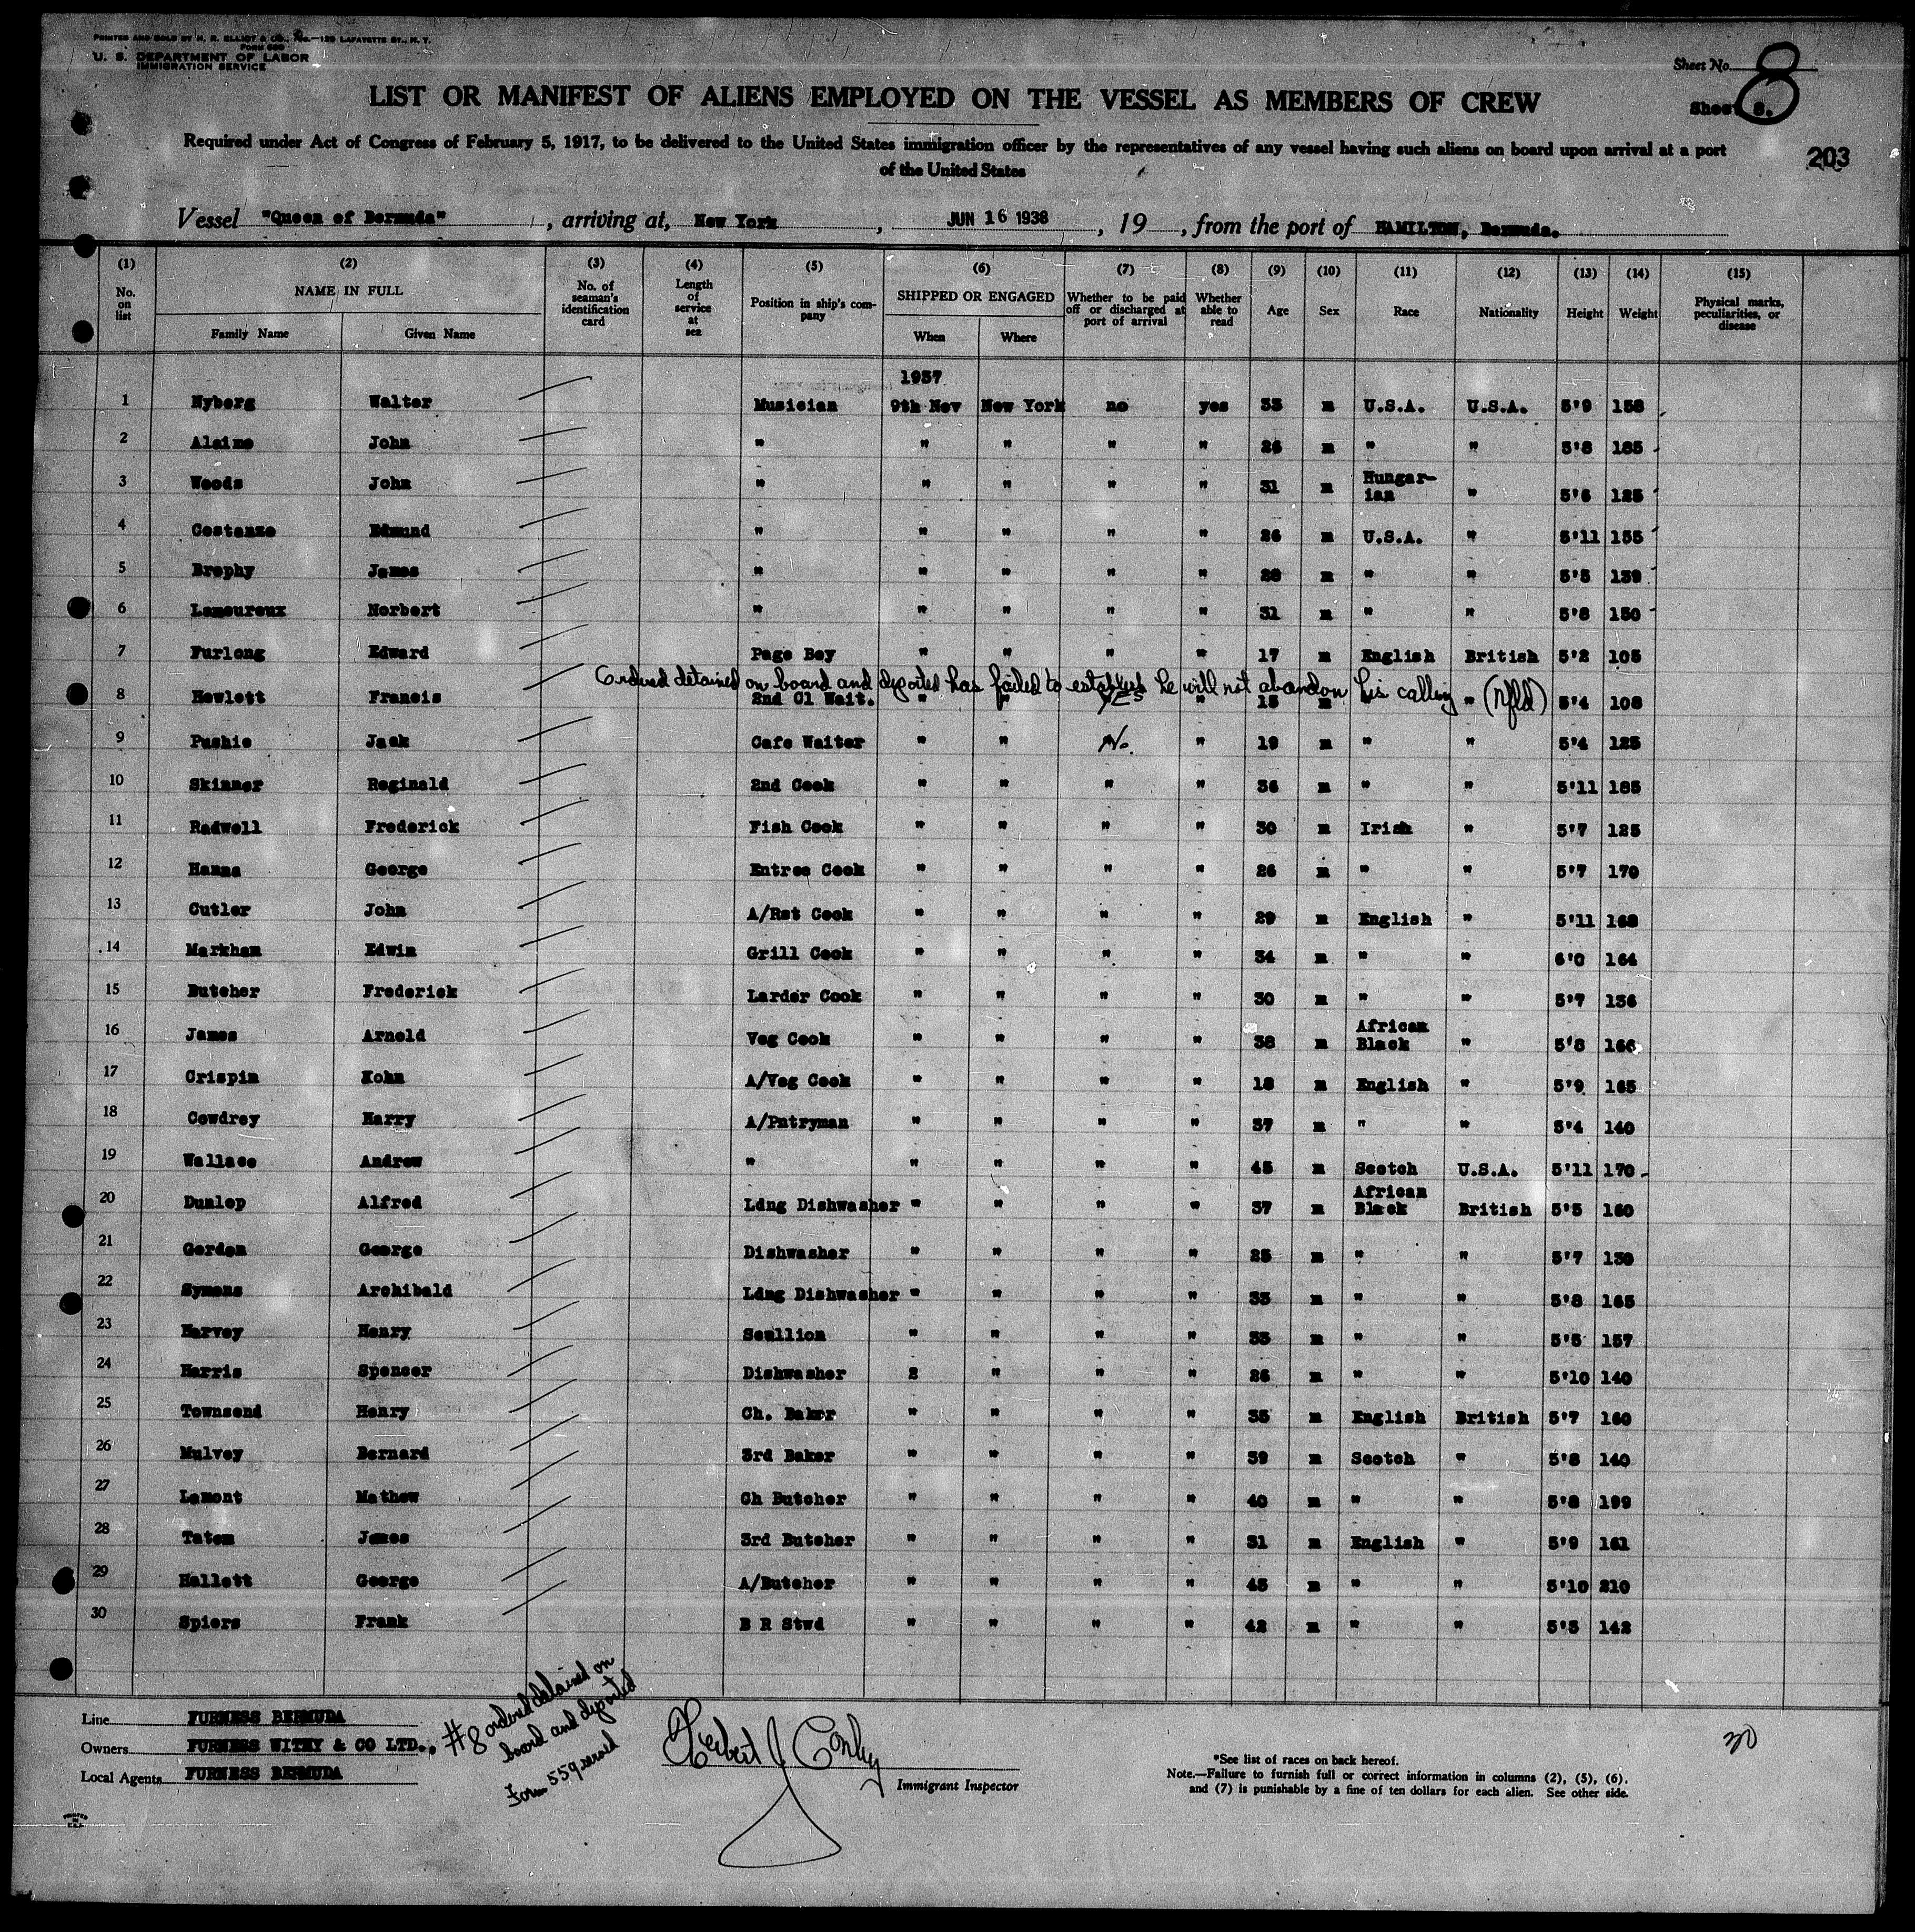 PRINTED AND SOLD BY H. R. ELLIOT & CO., INC.—129 LAFAYETTE ST., N. Y.
Form 680
U. S. DEPARTMENT OF LABOR
IMMIGRATION SERVICE
Sheet No. 8
Sheet 8.
LIST OR MANIFEST OF ALIENS EMPLOYED ON THE VESSEL AS MEMBERS OF CREW
Required under Act of Congress of February 5, 1917, to be delivered to the United States immigration officer by the representatives of any vessel having such aliens on board upon arrival at a port
of the United States
203
Vessel "Queen of Bermuda", arriving at, New York, JUN 16 1938, 19, from the port of HAMILTON, Bermuda.
(1) No. on list (2) NAME IN FULL Family Name Given Name (3) No. of seaman's identification card (4) Length of service at sea (5) Position in ship's company (6) SHIPPED OR ENGAGED When Where (7) Whether to be paid off or discharged at port of arrival (8) Whether able to read (9) Age (10) Sex (11) Race (12) Nationality (13) Height (14) Weight (15) Physical marks, peculiarities, or disease
1937
1 Nyberg Walter Musician 9th Nov New York no yes 33 m U.S.A. U.S.A. 5'9 158
2 Alaimo John " " " " " 26 m " " 5'8 185
3 Woods John " " " " " 31 m Hungarian " 5'6 125
4 Costanzo Edmund " " " " " 26 m U.S.A. " 5'11 155
5 Brophy James " " " " " 28 m " " 5'5 139
6 Lamoureux Norbert " " " " " 31 m " " 5'8 150
7 Furlong Edward Page Boy " " " " 17 m English British 5'2 105
Ordered detained on board and deported has failed to establish he will not abandon his calling
8 Hewlett Francis 2nd Cl Wait. " " yes " 18 m " " (Nfld) 5'4 108
9 Pushie Jack Cafe Waiter " " No. " 19 m " " 5'4 125
10 Skinner Reginald 2nd Cook " " " " 36 m " " 5'11 185
11 Radwell Frederick Fish Cook " " " " 30 m Irish " 5'7 125
12 Hanna George Entree Cook " " " " 26 m " " 5'7 170
13 Cutler John A/Rst Cook " " " " 29 m English " 5'11 168
14 Markham Edwin Grill Cook " " " " 34 m " " 6'0 164
15 Butcher Frederick Larder Cook " " " " 30 m " " 5'7 136
16 James Arnold Veg Cook " " " " 38 m African Black " 5'8 166
17 Crispin Kohn A/Veg Cook " " " " 18 m English " 5'9 165
18 Cowdrey Harry A/Pntryman " " " " 37 m " " 5'4 140
19 Wallace Andrew " " " " " 45 m Scotch U.S.A. 5'11 170
20 Dunlop Alfred Ldng Dishwasher " " " " 37 m African Black British 5'5 160
21 Gordon George Dishwasher " " " " 25 m " " 5'7 130
22 Symons Archibald Ldng Dishwasher " " " " 35 m " " 5'8 165
23 Harvey Henry Scullion " " " " 33 m " " 5'5 157
24 Harris Spencer Dishwasher 2 " " " 26 m " " 5'10 140
25 Townsend Henry Ch. Baker " " " " 35 m English British 5'7 160
26 Mulvey Bernard 3rd Baker " " " " 39 m Scotch " 5'8 140
27 Lamont Mathew Ch Butcher " " " " 40 m " " 5'8 199
28 Tatem James 3rd Butcher " " " " 31 m English " 5'9 161
29 Hallett George A/Butcher " " " " 45 m " " 5'10 210
30 Spiers Frank B R Stwd " " " " 42 m " " 5'5 142
Line FURNESS BERMUDA
Owners FURNESS WITHY & CO LTD.,
Local Agents FURNESS BERMUDA
#8 ordered detained on
board and deported
Form 559 served
Herbert J Conley
Immigrant Inspector
30
*See list of races on back hereof.
Note.—Failure to furnish full or correct information in columns (2), (5), (6),
and (7) is punishable by a fine of ten dollars for each alien. See other side.
PRINTED
IN
U.S.A.